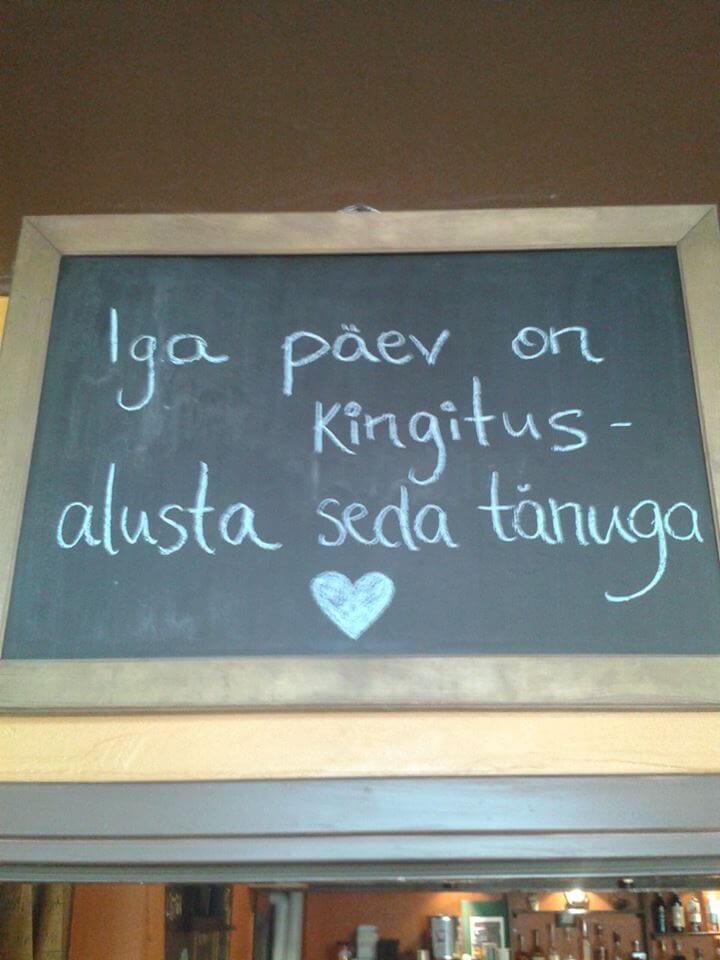 Iga päev on
kingitus -
alusta seda tänuga